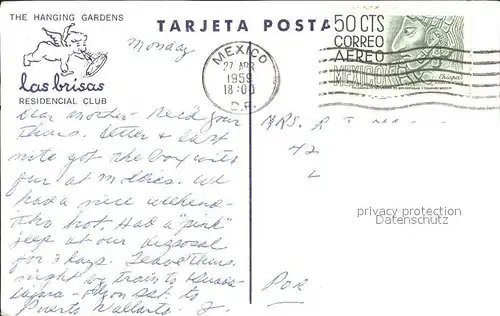 THE HANGING GARDENS
las brisas
RESIDENCIAL CLUB
TARJETA POSTA
MEXICO
27 APR
1959
18:00
D.F.
50 CTS
CORREO
AEREO
MEXICO
Chiapas
Monday
Dear Mother - Rec'd your
Thurs. letter & last
nite got the box with
fur at Mollies. We
had a nice weekend -
tho hot. Had a "pink"
jeep at our disposal
for 3 days. Leave Thurs.
night by train to Guada-
lajara - then Sat. to
Puerto Vallarta. J.
MRS. R
42
L
Por
privacy protection